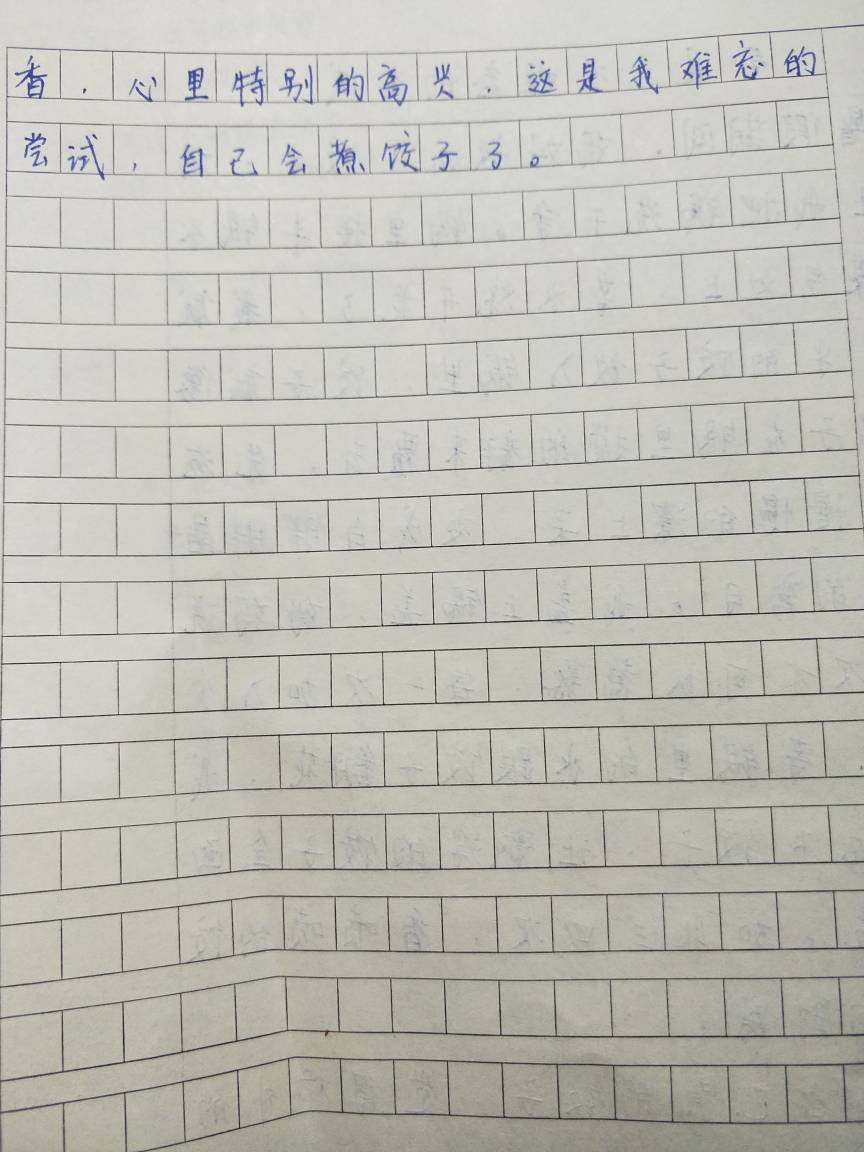 香，心里特别的高兴，这是我难忘的
尝试，自己会煮饺子了。